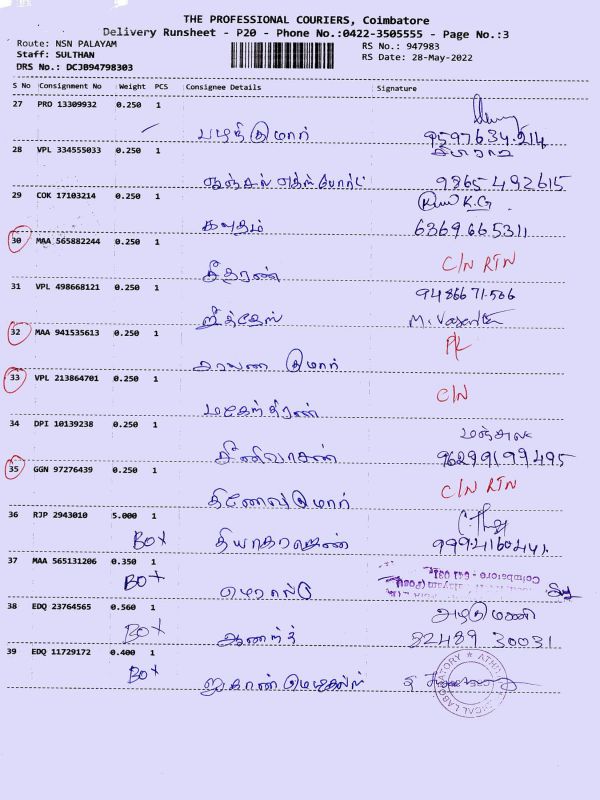 THE PROFESSIONAL COURIERS, Coimbatore
Delivery Runsheet - P20 - Phone No.:0422-3505555 - Page No.:3
Route: NSN PALAYAM
RS No.: 947983
Staff: SULTHAN
RS Date: 28-May-2022
DRS No.: DCJB94798303
S No Consignment No Weight PCS Consignee Details Signature
27 PRO 13309932 0.250 1
பழநிகுமார் 9597634214
28 VPL 334555033 0.250 1
9865492615
29 COK 17103214 0.250 1 K.G
கவுதம் 6369665311
30 MAA 565882244 0.250 1 C/N RTN
ஸ்ரீதரன்
31 VPL 498668121 0.250 1 9486671566
ஜீத்தேஸ் M. Vasantha
32 MAA 941535613 0.250 1
சரவண குமார்
33 VPL 213864701 0.250 1 C/N
மகேந்திரன்
34 DPI 10139238 0.250 1 மஞ்சுல
சீனிவாசன் 96299199495
35 GGN 97276439 0.250 1 C/N RTN
தினேஷ்குமார்
36 RJP 2943010 5.000 1
BOX தியாகராஜன் 9994160441
37 MAA 565131206 0.350 1
BOX Coimbatore - 641 031
38 EDQ 23764565 0.560 1 அழகுமணி
BOX ஆனந்த் 82489 30031
39 EDQ 11729172 0.400 1
BOX